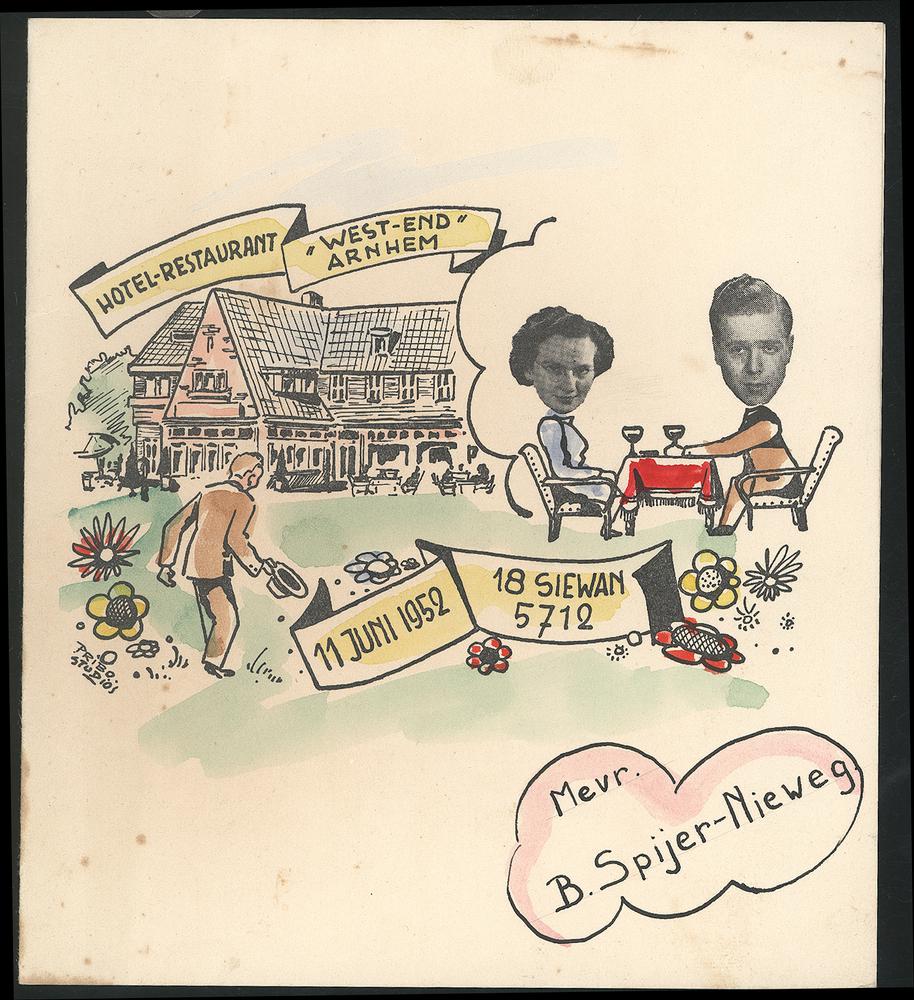 HOTEL-RESTAURANT
"WEST-END"
ARNHEM
11 JUNI 1952
18 SIEWAN
5712
PRIBO
STUDIOS
Mevr.
B. Spijer-Nieweg